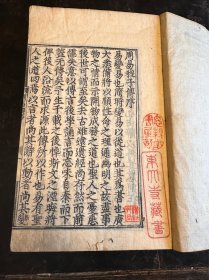 周易程子傳序
易變易也隨時變易以從道也其為書也廣
大悉備將以順性命之理通幽明之故盡事
物之情而示開物成務之道也聖人之憂患
後世可謂至矣去古雖遠遺經尚存然而前
儒失意以傳言後學誦言而忘味自秦而下
蓋無傳矣予生千載之後悼斯文之湮晦將
俾後人沿流而求源此傳所以作也易有聖
人之道四焉以言者尚其辭以動者尚其變
東大寺藏書